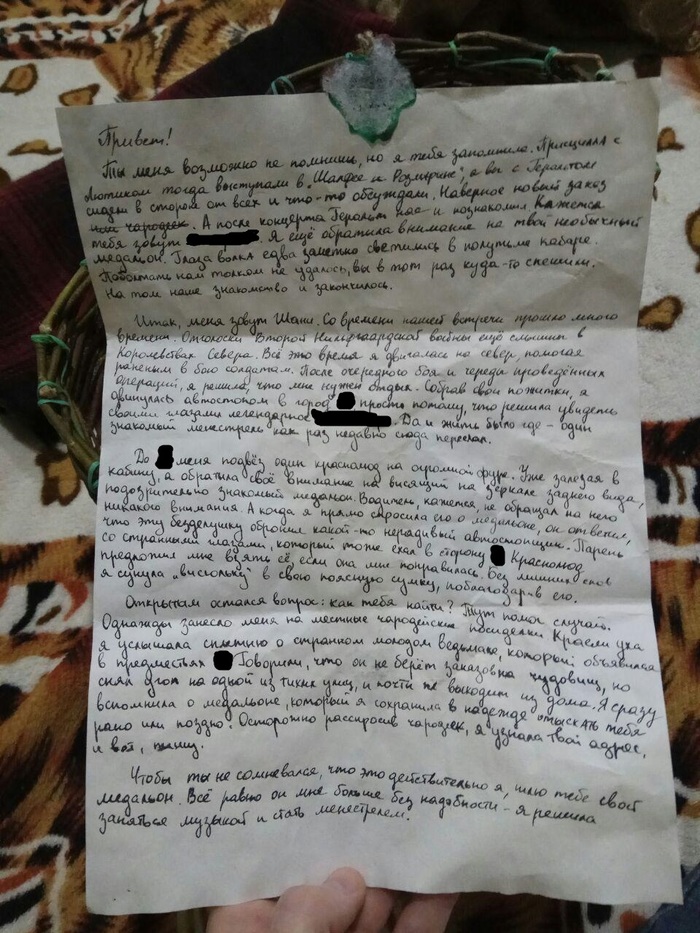 Привет!
Ты меня возможно не помнишь, но я тебя запомнила. Присцилла с
Лютиком тогда выступали в "Шалфее и Розмарине", а вы с Геральтом
сидели в стороне от всех и что-то обсуждали. Наверное новый заказ
или чародеек. А после концерта Геральт нас и познакомил. Кажется
тебя зовут. Я ещё обратила внимание на твой необычный
медальон. Глаза волка едва заметно светились в полутьме кабаре.
Поболтать нам толком не удалось, вы в тот раз куда-то спешили.
На том наше знакомство и закончилось.
Итак, меня зовут Шани. Со времени нашей встречи прошло много
времени. Отголоски Второй Нильфгаардской войны ещё слышны в
Королевствах Севера. Всё это время я двигалась на север, помогая
раненым в бою солдатам. После очередного боя и череды проведённых
операций, я решила, что мне нужен отдых. Собрав свои пожитки, я
двинулась автостопом в город просто потому, что решила увидеть
своими глазами легендарное. Да и жить было где - один
знакомый менестрель как раз недавно сюда переехал.
До меня подвёз один краснолюд на огромной фуре. Уже залезая в
кабину, я обратила своё внимание на висящий на зеркале заднего вида,
подозрительно знакомый медальон. Водитель, кажется, не обращал на него
никакого внимания. А когда я прямо спросила его о медальоне, он ответил,
что эту безделушку обронил какой-то нерадивый автостопщик. Парень
со странными глазами, который тоже ехал в сторону Краснолюд
предложил мне взять её, если она мне понравилась. Без лишних слов
я сунула "висюльку" в свою поясную сумку, поблагодарив его.
Открытым остался вопрос: как тебя найти? Тут помог случай.
Однажды занесло меня на местные чародейские посиделки. Краем уха
я услышала сплетню о странном молодом ведьмаке, который объявился
в предместьях. Говорили, что он не берёт заказов на чудовищ, но
снял дом на одной из тихих улиц, и почти не выходит из дома. Я сразу
вспомнила о медальоне, который я сохранила в надежде отыскать тебя
рано или поздно. Осторожно расспросив чародеек, я узнала твой адрес,
и вот, пишу.
Чтобы ты не сомневался, что это действительно я, шлю тебе свой
медальон. Всё равно он мне больше без надобности - я решила
заняться музыкой и стать менестрелем.